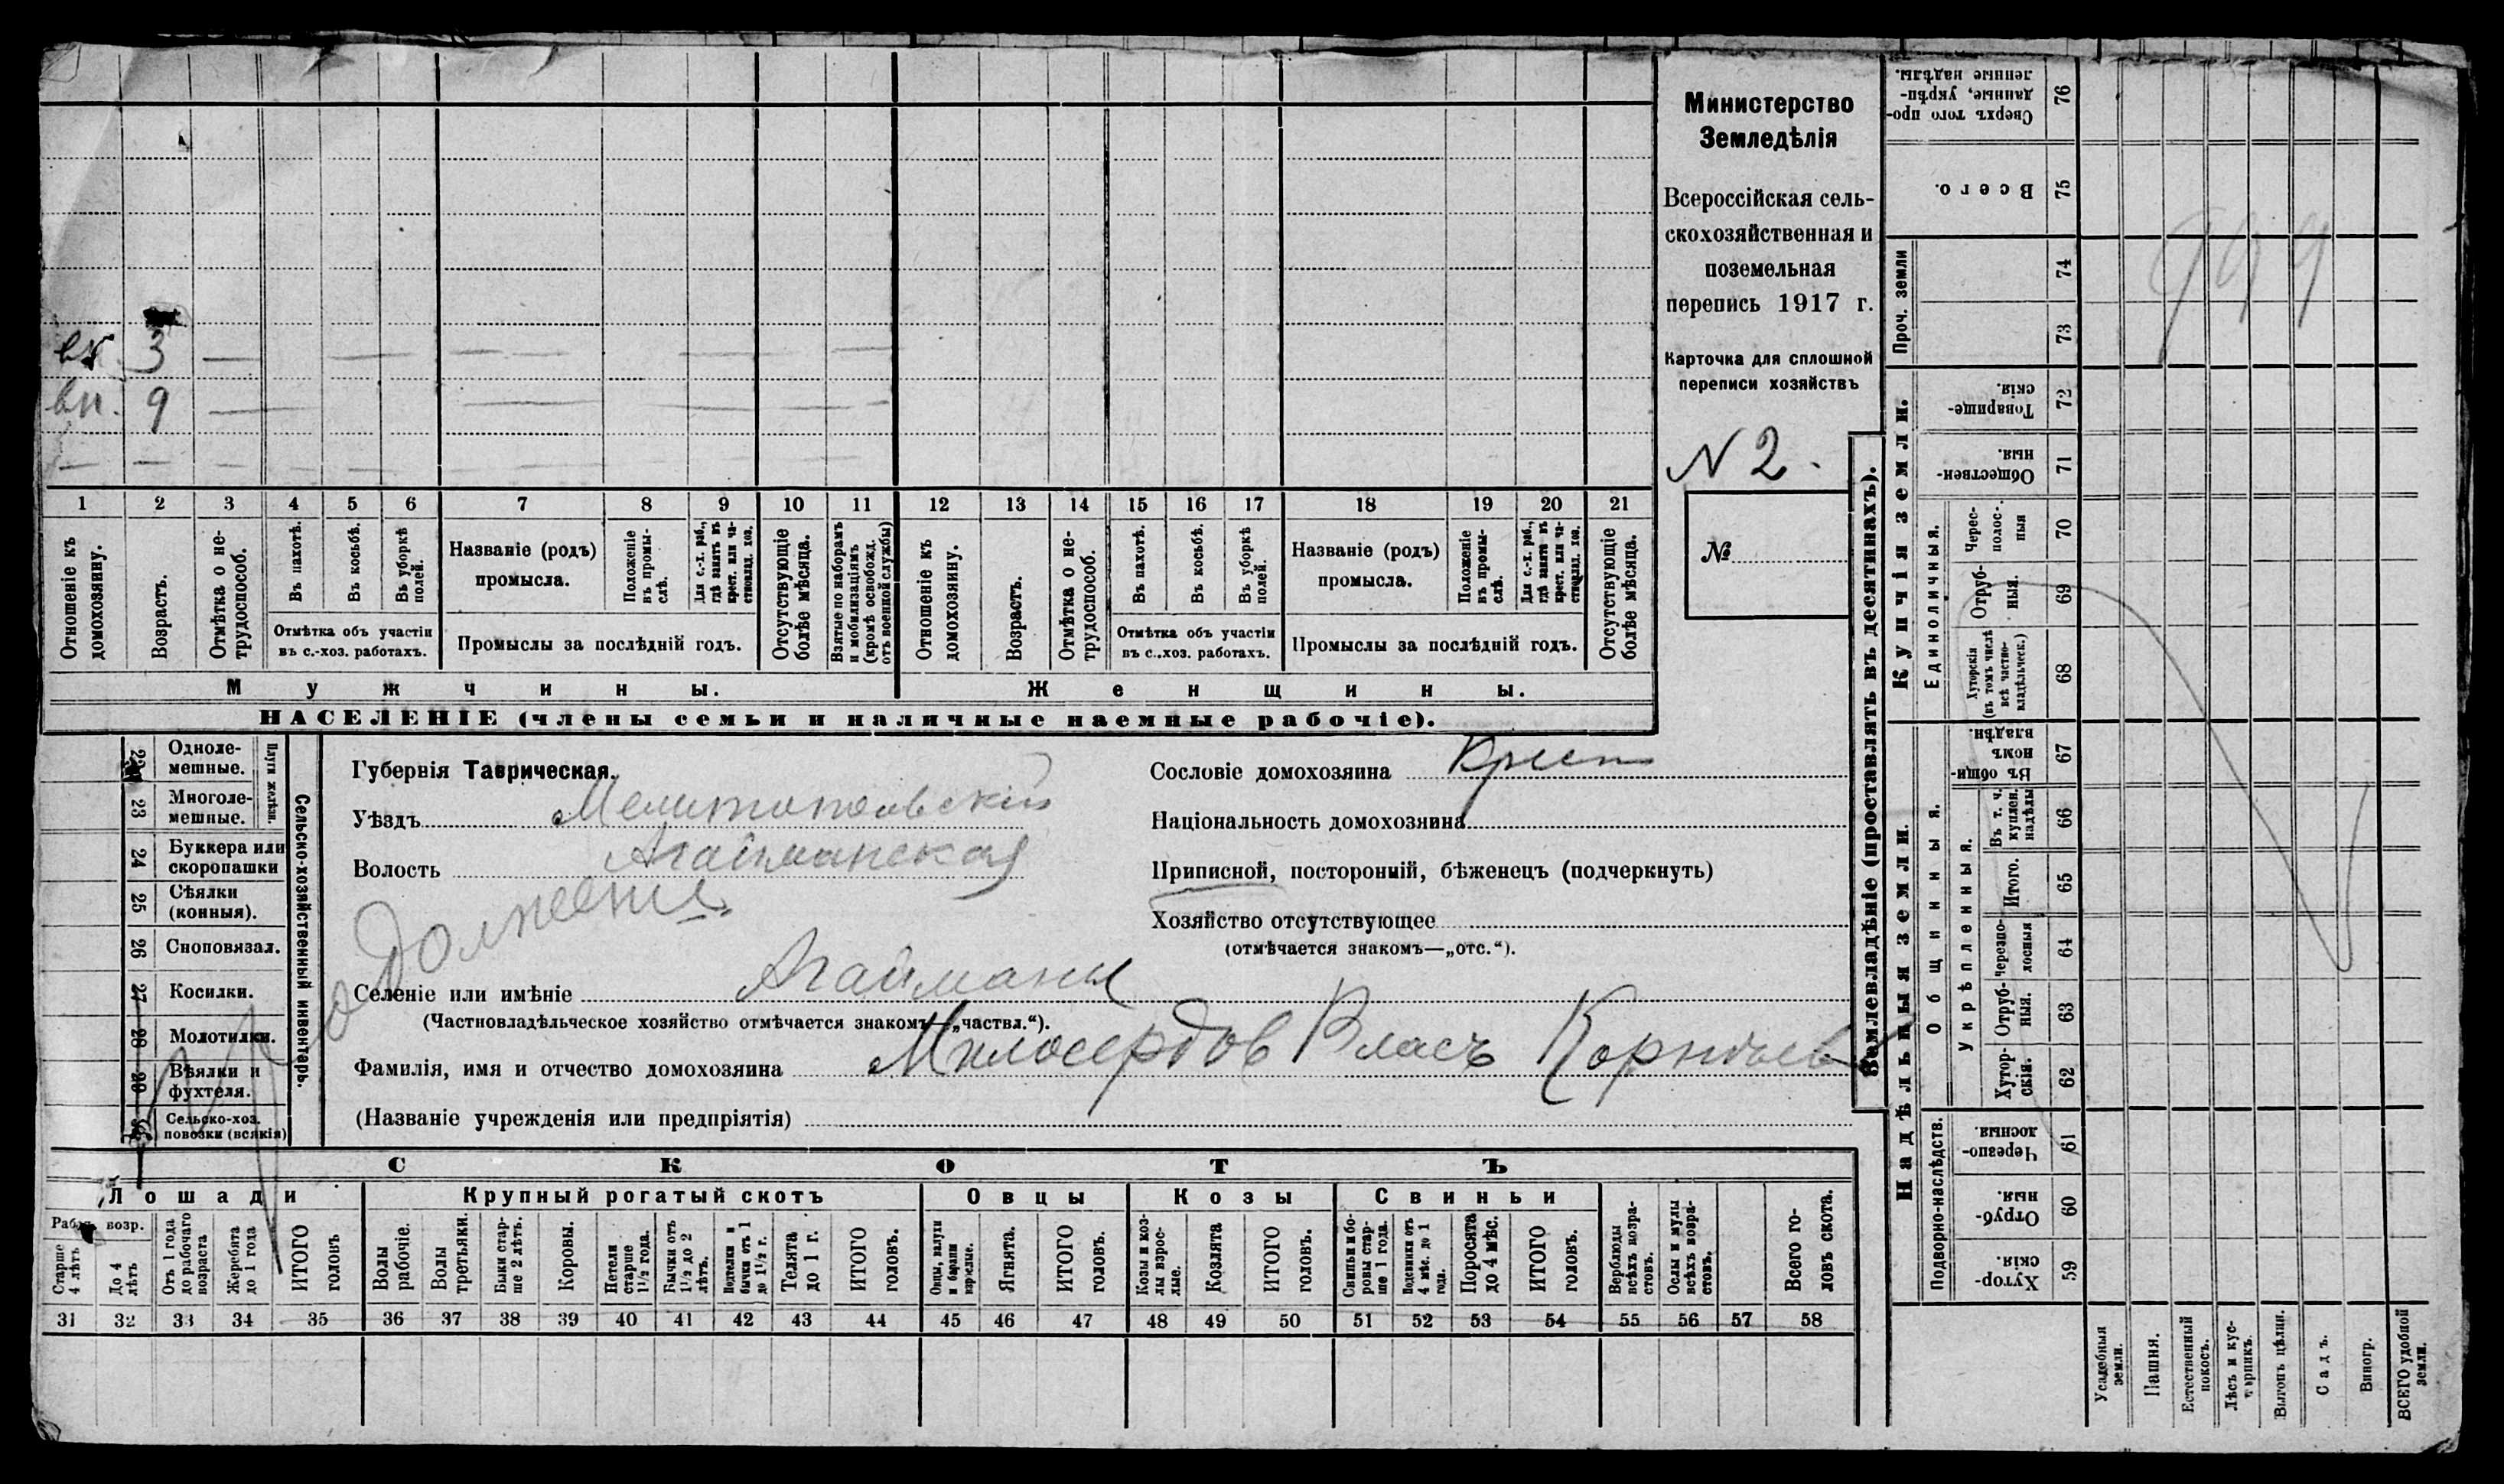 Министерство
Земледѣлія
Всероссійская сель-
скохозяйственная и
поземельная
перепись 1917 г.
Карточка для сплошной
переписи хозяйствъ
N 2.
№
вк 3 —
вп. 9 —
1 2 3 4 5 6 7 8 9 10 11 12 13 14 15 16 17 18 19 20 21
Отношеніе къ домохозяину.
Возрастъ.
Отмѣтка о не-трудоспособ.
Въ пахотѣ.
Въ косьбѣ.
Въ уборкѣ полей.
Отмѣтка объ участіи
въ с.-хоз. работахъ.
Названіе (родъ)
промысла.
Положеніе въ промы-слѣ.
Для с.-х. раб., гдѣ занятъ въ крест. или ча-стновлад. хоз.
Промыслы за послѣдній годъ.
Отсутствующіе болѣе мѣсяца.
Взятые по наборамъ и мобилизаціямъ (кромѣ освобожд. отъ военной службы)
Отношеніе къ домохозяину.
Возрастъ.
Отмѣтка о не-трудоспособ.
Въ пахотѣ.
Въ косьбѣ.
Въ уборкѣ полей.
Отмѣтка объ участіи
въ с.-хоз. работахъ.
Названіе (родъ)
промысла.
Положеніе въ промы-слѣ.
Для с.-х. раб., гдѣ занята въ крест. или ча-стновлад. хоз.
Промыслы за послѣдній годъ.
Отсутствующіе болѣе мѣсяца.
Мужчины.
Женщины.
НАСЕЛЕНІЕ (члены семьи и наличные наемные рабочіе).
Сельско-хозяйственный инвентарь.
Плуги желѣзн.
22 Одноле-мешные.
23 Многоле-мешные.
24 Буккера или скоропашки
25 Сѣялки (конныя).
26 Сноповязал.
27 Косилки.
28 Молотилки.
29 Вѣялки и фухтеля.
30 Сельско-хоз. повозки (всякія)
Губернія Таврическая.
Уѣздъ Мелитопольскій
Волость Агайманская
Продолженіе
Селеніе или имѣніе Агайманы
(Частновладѣльческое хозяйство отмѣчается знакомъ—„частвл.“).
Фамилія, имя и отчество домохозяина Милосердов Власъ Корнѣев
(Названіе учрежденія или предпріятія)
Сословіе домохозяина Крест
Національность домохозяина
Приписной, посторонній, бѣженецъ (подчеркнуть)
Хозяйство отсутствующее
(отмѣчается знакомъ—„отс.“).
СКОТЪ
Лошади
Крупный рогатый скотъ
Овцы
Козы
Свиньи
Рабоч. возр.
Старше 4 лѣтъ
До 4 лѣтъ
Отъ 1 года до рабочаго возраста
Жеребята до 1 года
ИТОГО головъ
Волы рабочіе.
Волы третьяки.
Быки стар-ше 2 лѣтъ.
Коровы.
Нетели старше 1½ года.
Бычки отъ 1½ до 2 лѣтъ.
Подтелки и бычки отъ 1 до 1½ г.
Телята до 1 г.
ИТОГО головъ.
Овцы, валухи и бараны взрослые.
Ягнята.
ИТОГО головъ.
Козы и коз-лы взрос-лые.
Козлята
ИТОГО головъ.
Свиньи и бо-ровы стар-ше 1 года.
Подсвинки отъ 4 мѣс. до 1 года.
Поросята до 4 мѣс.
ИТОГО головъ.
Верблюды всѣхъ возра-стовъ.
Ослы и мулы всѣхъ возра-стовъ.
Всего го-ловъ скота.
31 32 33 34 35 36 37 38 39 40 41 42 43 44 45 46 47 48 49 50 51 52 53 54 55 56 57 58
Землевладѣніе (проставлять въ десятинахъ).
Купчія земли.
Надѣльныя земли.
Проч. земли
Единоличныя.
Общинныя.
Укрѣпленныя.
Подворно-наслѣдств.
Сверхъ того про-данные, укрѣп-ленные надѣлы. 76
Всего. 75
74
73
Товарище-скія. 72
Обществен-ныя. 71
Черес-полос-ныя 70
Отруб-ныя. 69
Хуторскія (въ томъ числѣ всѣ частно-владѣльческ.) 68
Въ общин-номъ владѣн. 67
Въ т. ч. куплен. надѣлы 66
Итого. 65
черезпо-лосныя 64
Отруб-ныя. 63
Хутор-скія. 62
Черезпо-лосныя. 61
Отруб-ныя. 60
Хутор-скія. 59
Усадебныя земли.
Пашня.
Естественный покосъ.
Лѣсъ и кус-тарникъ.
Выгонъ цѣлин.
Садъ.
Виногр.
ВСЕГО удобной земли.
999